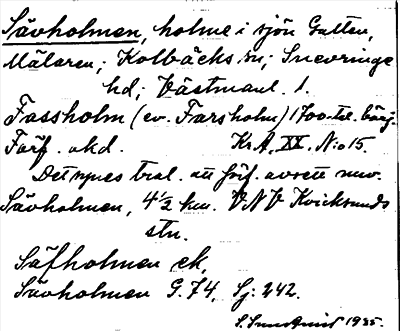 Sävholmen, holme i sjön Galten,
Mälaren; Kolbäcks sn; Snevringe
hd; Västmanl. l.
Fassholm (ev. Farsholm) 1700-tal. börj.
Förf. okd. Kr A, XX. N:o 15.
Det synes trol. att förf. avsett nuv.
Sävholmen, 4½ km. VNV Kvicksunds
stn.
Säfholmen ek,
Sävholmen G. 74, Sj: 242.
S. Sundqvist 1935.